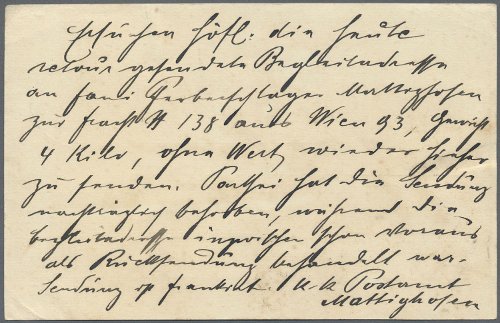 Ersuchen höfl. die heute
retour gesendete Begleitadresse
an Fani Gerberschlager Mattighofen
zur Fracht # 138 aus Wien 93, Gewicht
4 Kilo, ohne Wert, wieder hieher
zu senden. Parthei hat die Sendung
nachträglich behoben, während die
begleitadresse inzwischen schon voraus
als Rücksendung behandelt war.
Sendung ist frankirt. K. K. Postamt
Mattighofen